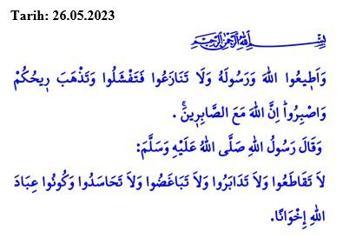 Tarih: 26.05.2023
بِسْمِ اللهِ الرَّحْمٰنِ الرَّحِيمِ
وَاَطٖيعُوا اللهَ وَرَسُولَهُ وَلَا تَنَازَعُوا فَتَفْشَلُوا وَتَذْهَبَ رٖيحُكُمْ
وَاصْبِرُواۜ اِنَّ اللهَ مَعَ الصَّابِرٖينَۚ .
وَقَالَ رَسُولُ اللهِ صَلَّى اللهُ عَلَيْهِ وَسَلَّمَ:
لاَ تَقَاطَعُوا وَلاَ تَدَابَرُوا وَلاَ تَبَاغَضُوا وَلاَ تَحَاسَدُوا وَكُونُوا عِبَادَ
اللهِ إِخْوَانًا.